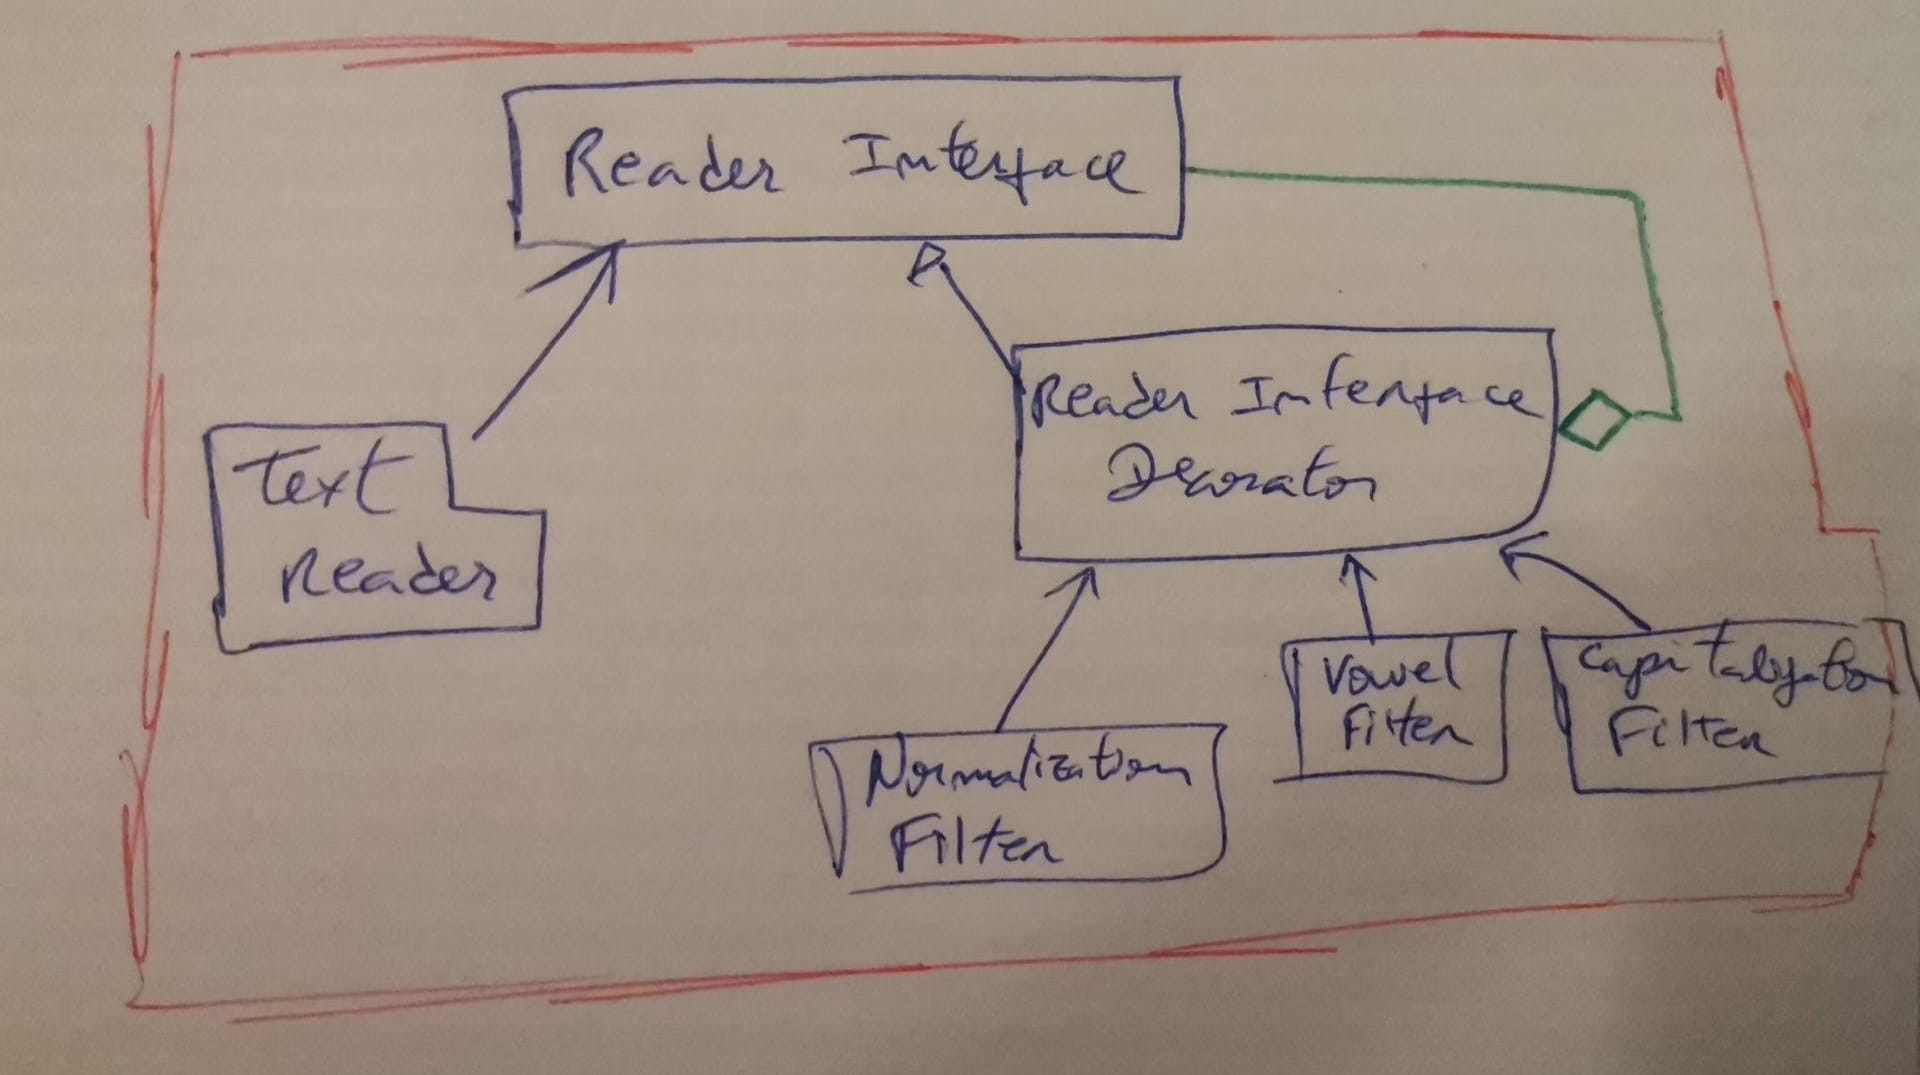 Reader Interface
Text
Reader
Reader Interface
Decorator
Normalization
Filter
Vowel
Filter
Capitalization
Filter